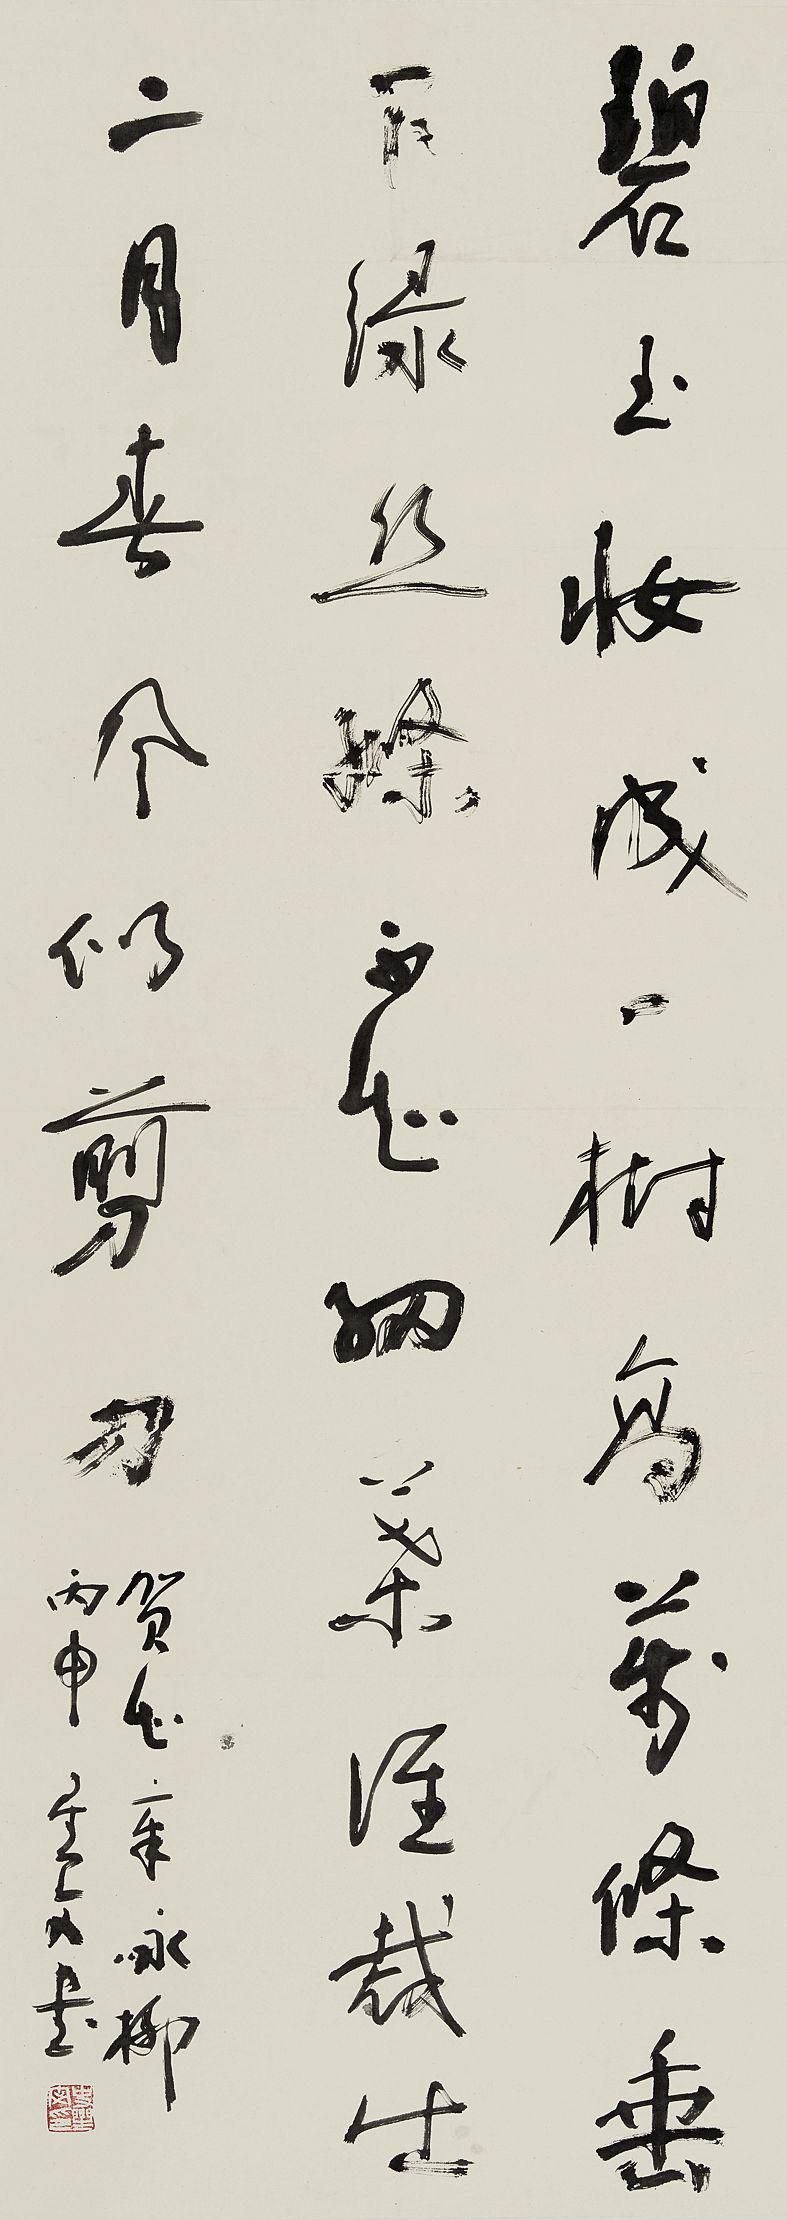 碧玉妝成一樹高萬條垂
下绿丝絛不知細葉誰裁出
二月春风似剪刀
贺知章咏柳
丙申 書